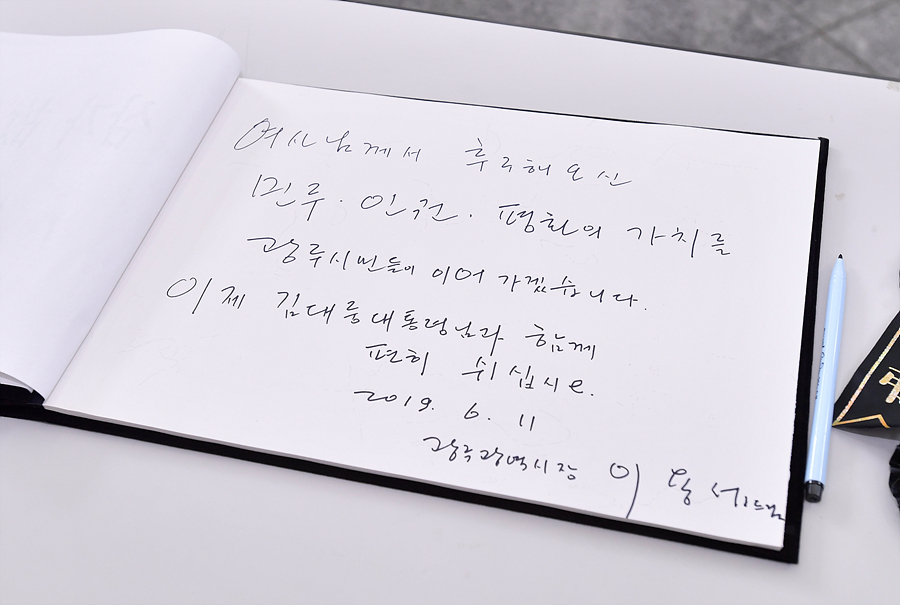 여사님께서 추구해오신
민주·인권·평화의 가치를
광주시민들이 이어 가겠습니다.
이제 김대중대통령님과 함께
편히 쉬십시오.
2019. 6. 11
광주광역시장 이용섭드림